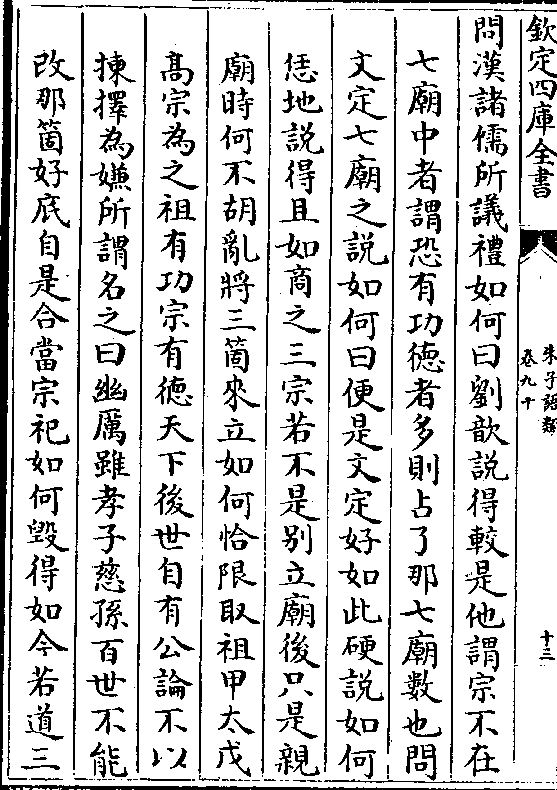 欽定四庫全書
朱子語類
卷九十
十三
問漢諸儒所議禮如何曰劉歆説得較是他謂宗不在
七廟中者謂恐有功徳者多則占了那七廟數也問
文定七廟之説如何曰便是文定好如此硬説如何
恁地説得且如商之三宗若不是别立廟後只是親
廟時何不胡亂將三箇來立如何恰限取祖甲太戊
髙宗為之祖有功宗有徳天下後世自有公論不以
揀擇為嫌所謂名之曰幽厲雖孝子慈孫百世不能
改那箇好底自是合當宗祀如何毁得如今若道三